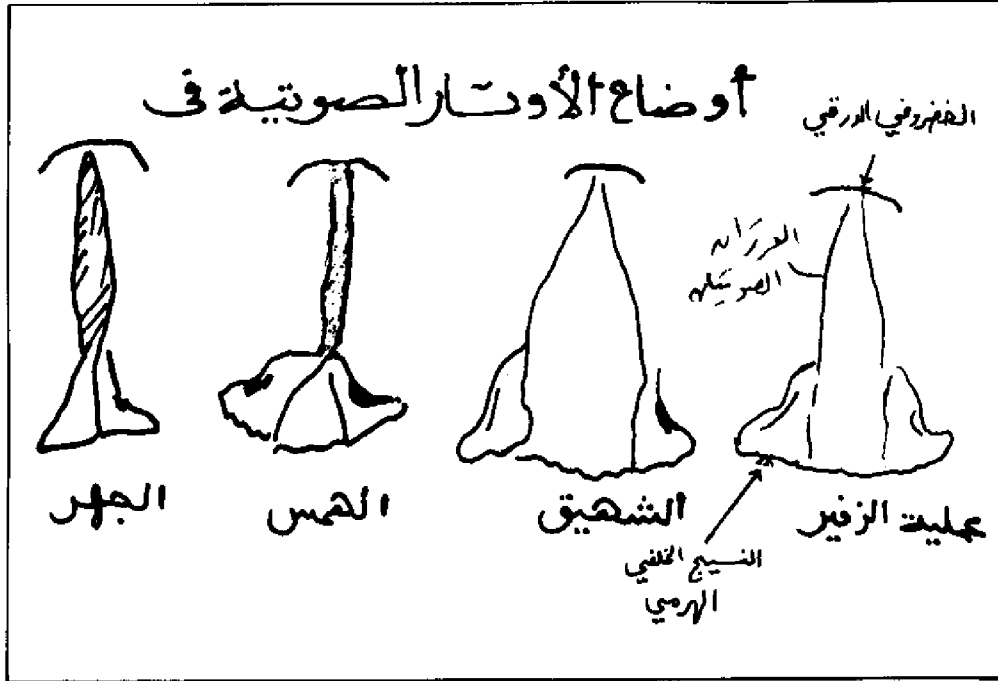 أوضاع الأوتار الصوتية في
الغضروفي الدرقي
الوتران
الصوتيان
عملية الزفير
الشهيق
الهمس
الجهر
النسيج الخلفي
الهرمي